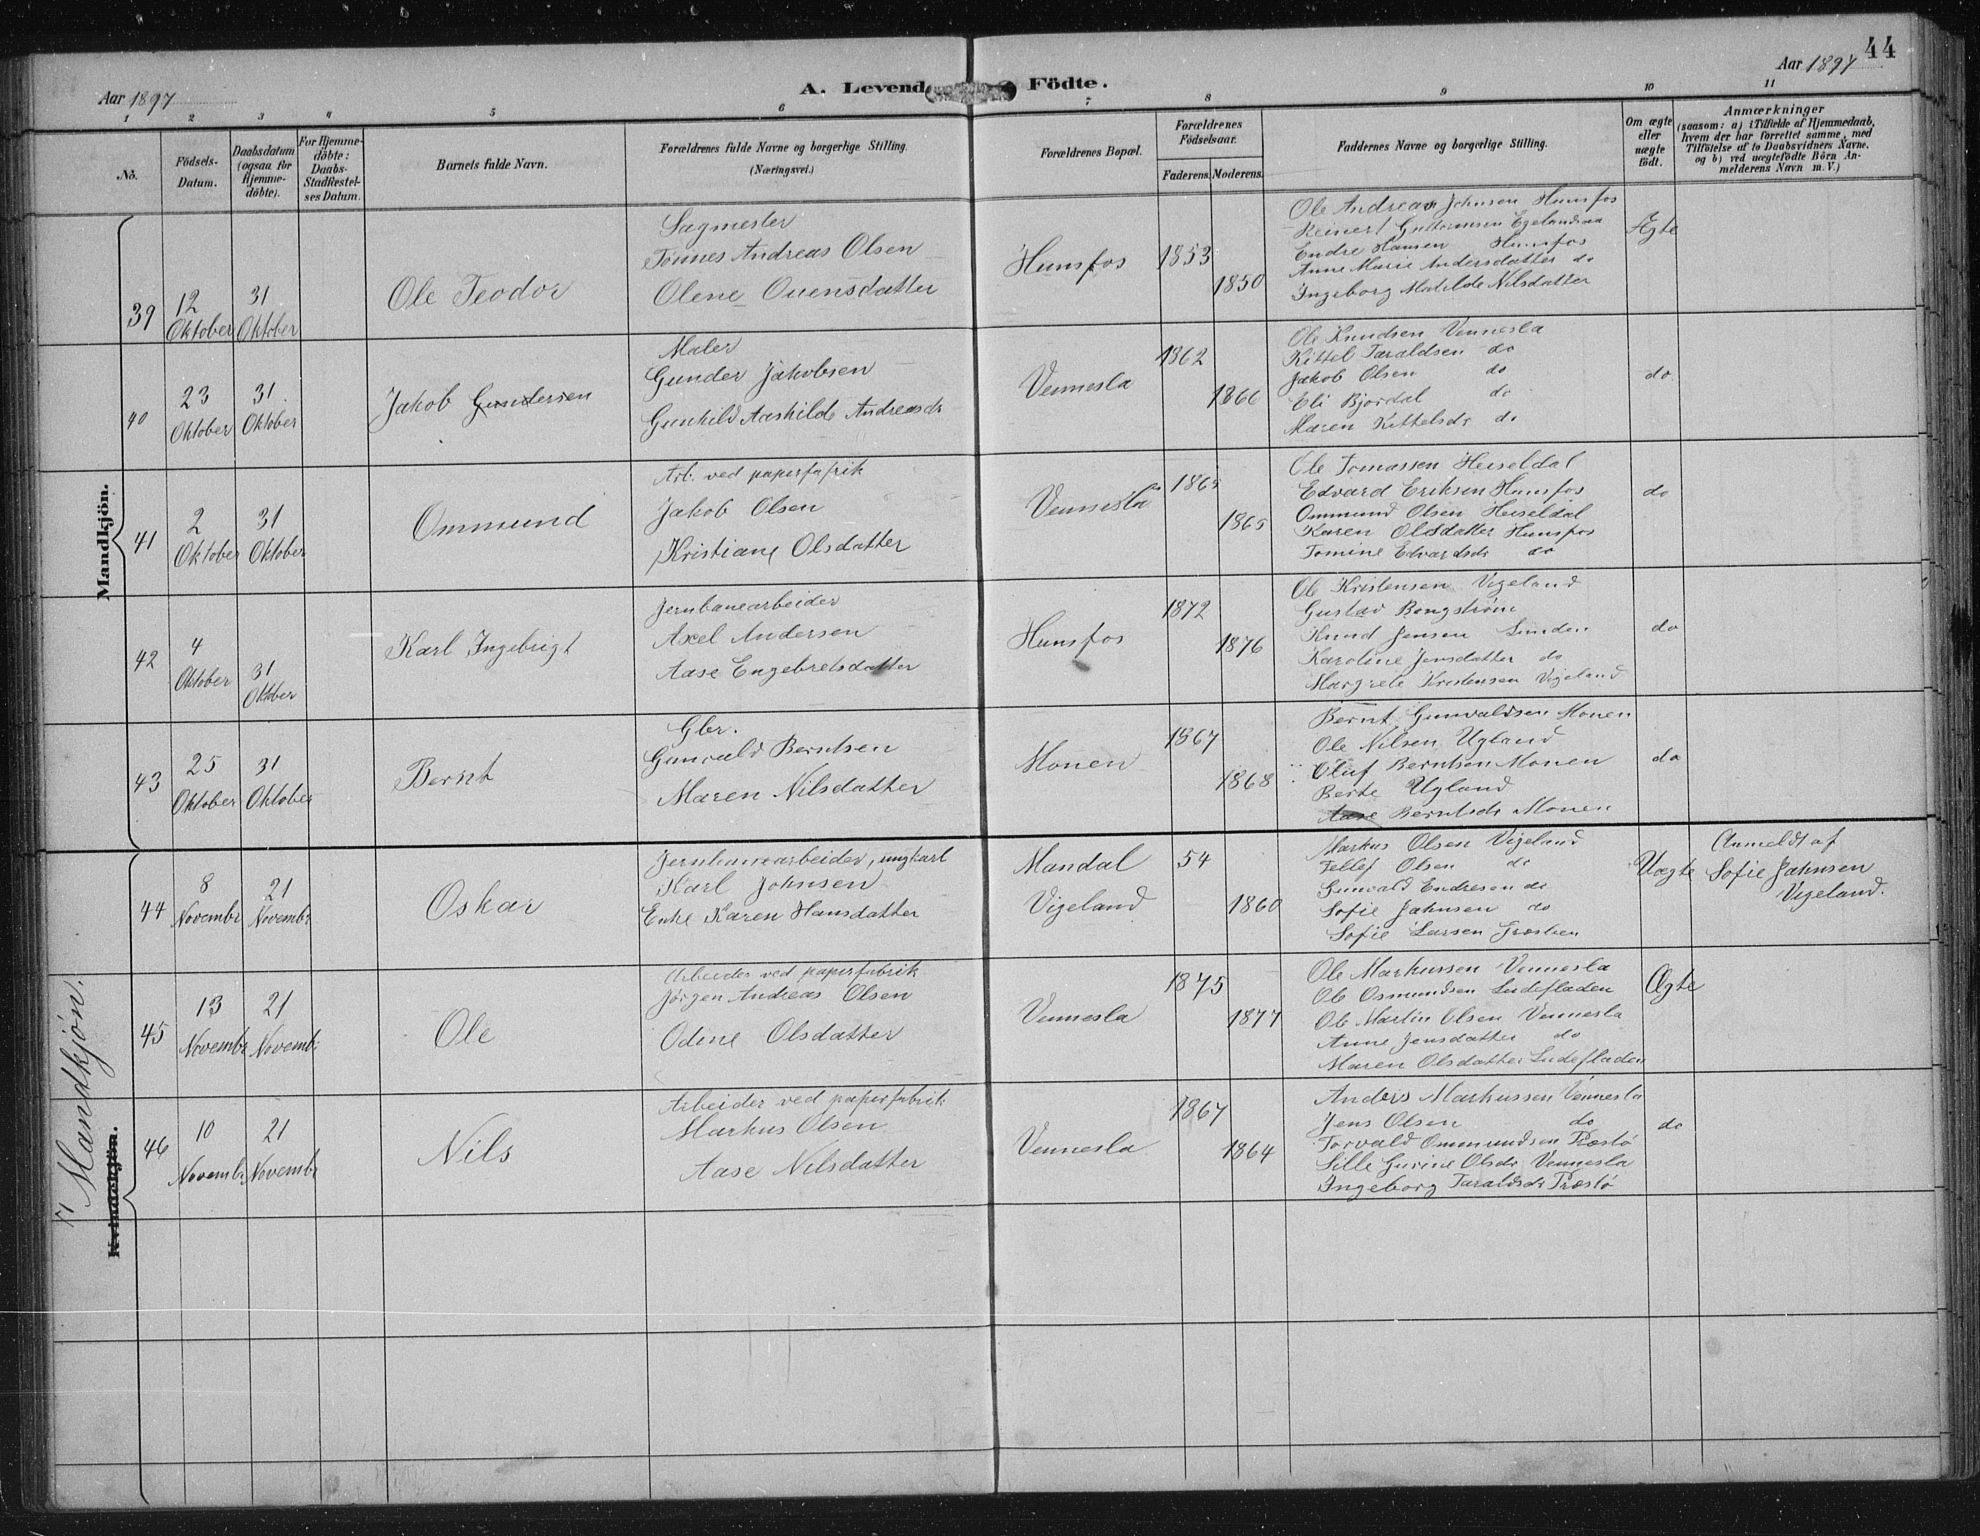 44
Aar 1897
A. Levend Födte.
Aar 1897
1 2 3 4 5 6 7 8 9 10 11
No.
Födsels-Datum.
Daabsdatum (ogsaa for Hjemme-döbte).
For Hjemme-döbte: Daabs-Stadfestel-ses Datum.
Barnets fulde Navn.
Forældrenes fulde Navne og borgerlige Stilling. (Næringsvei.)
Forældrenes Bopæl.
Forældrenes Födselsaar.
Faderens. Moderens.
Faddernes Navne og borgerlige Stilling.
Om ægte eller uægte födt.
Anmærkninger
(saasom: a) i Tilfælde af Hjemmedaab,
hvem der har forrettet samme, med
Tilföielse af to Daabsvidners Navne.
og b) ved uægtefödte Börn An-
melderens Navn m. V.)
Mandkjön.
39
12 Oktober
31 Oktober
Ole Teodor
Sagmester
Tönnes Andreas Olsen
Olene Ouensdatter
Hunsfos
1853
1850
Ole Andreas Johnsen Hunsfos
Reinert Guttormsen Egelandsaa
Endre Hansen Hunsfos
Anne Marie Andersdatter do
Ingeborg Matilde Nilsdatter
Ægte
40
23 Oktober
31. Oktober
Jakob Gundersen
Maler
Gunder Jakobsen
Gunhild Aashilde Andreasdr
Vennesla
1862
1866
Ole Knudsen Vennesla
Kittel Taraldsen do
Jakob Olsen do
Eli Bjordal do
Maren Kittelsdr do
do
41
2 Oktober
31 Oktober
Ommund
Arb. ved paperfabrik
Jakob Olsen
Kristiane Olsdatter
Vennesla
1865
1865
Ole Tomassen Heiseldal
Edvard Eriksen Hunsfos
Ommund Olsen Heiseldal
Karen Olsdatter Hunsfos
Tomine Edvardsdr do
do
42
4 Oktober
31 Oktober
Karl Ingebrigt
Jernbanearbeider
Axel Andersen
Aase Engebretsdatter
Hunsfos
1872
1876
Ole Kristensen Vigeland
Gustav
Knud Jensen Lunden
Karoline Jensdatter do
Margrete Kristensen Vigeland
do
43
25 Oktober
31 Oktober
Bernt
Gbr.
Gunvald Berntsen
Maren Nilsdatter
Monen
1867
1868
Bernt Gunvaldsen Monen
Ole Nilsen Ugland
Oluf Berntsen Monen
Berte Ugland
Aase Berntsdr Monen
do
7 Mandkjön.
Kvindekjön.
44
8 Novembr
21 Novembr
Oskar
Jernbanearbeider, ungkarl
Karl Johnsen
Enke Karen Hansdatter
Mandal
Vigeland
54
1860
Markus Olsen Vigeland
Tellef Olsen do
Gunvald Endresen do
Sofie Jahnsen do
Sofie Larsen
Uægte
Anmeldt af
Sofie Jahnsen
Vigeland.
45
13 Novembr
21 Novembr
Ole
Arbeider ved paperfabrik
Jörgen Andreas Olsen
Odine Olsdatter
Vennesla
1875
1877
Ole Markussen Vennesla
Ole Osmundsen Lindefladen
Ole Martin Olsen Vennesla
Anne Jensdatter do
Maren Olsdatter Lindefladen
Ægte
46
10 Novembr
21 Novembr
Nils
Arbeider ved paperfabrik
Markus Olsen
Aase Nilsdatter
Vennesla
1867
1864
Anders Markussen Vennesla
Jens Olsen do
Torvald Ommundsen Præstö
Sille Gurine Olsdr Vennesla
Ingeborg Taraldsdr Præstö
do